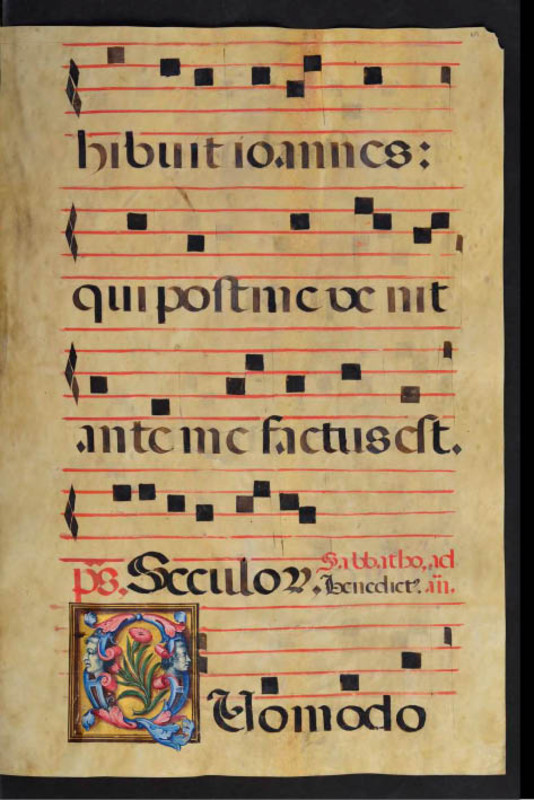 hibuit ioannes:
qui post me ve nit
ante me factus est.
ps. Seculor. Sabbatho, ad
Benedict9. an.
QUomodo